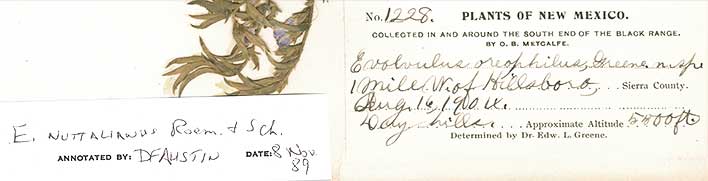 No. 1228. PLANTS OF NEW MEXICO.
COLLECTED IN AND AROUND THE SOUTH END OF THE BLACK RANGE,
BY O. B. METCALFE.
Evolvulus oreophilus, Greene n. sp.
1 Mile W. of Hillsboro, . . Sierra County.
Aug. 16, 1904.
Dry hills. . . . Approximate Altitude 5500 ft.
Determined by Dr. Edw. L. Greene.
E. NUTTALIANUS Roem. + Sch.
ANNOTATED BY: DFAUSTIN DATE: 8 Nov
89